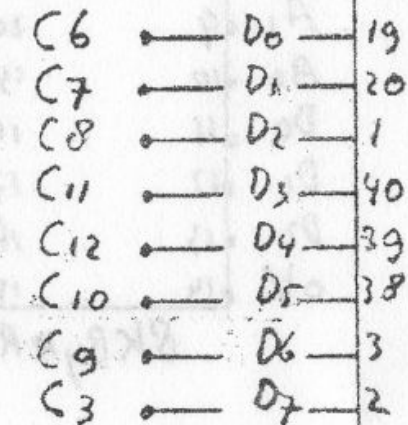 C6 D0 19
C7 D1 20
C8 D2 1
C11 D3 40
C12 D4 39
C10 D5 38
C9 D6 3
C3 D7 2